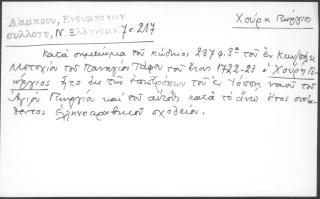 Λάμπρου, Ενθυμήσεων
συλλογή, Ν. Ελληνομν. 7 σ 217
Χούρη Γεώργιος
Κατά σημείωμα του κώδικος 237 φ. 3α του εν Κων/πόλει
Μετοχίου του Παναγίου Τάφου του έτους 1722-23 ο Χούρη Γε-
ώργιος ήτο εκ των επιτρόπων του εν Ιόππη ναού του
Αγίου Γεωργίου και του αυτόθι κατά το άνω έτος
Ελληνοαραβικού σχολείου.